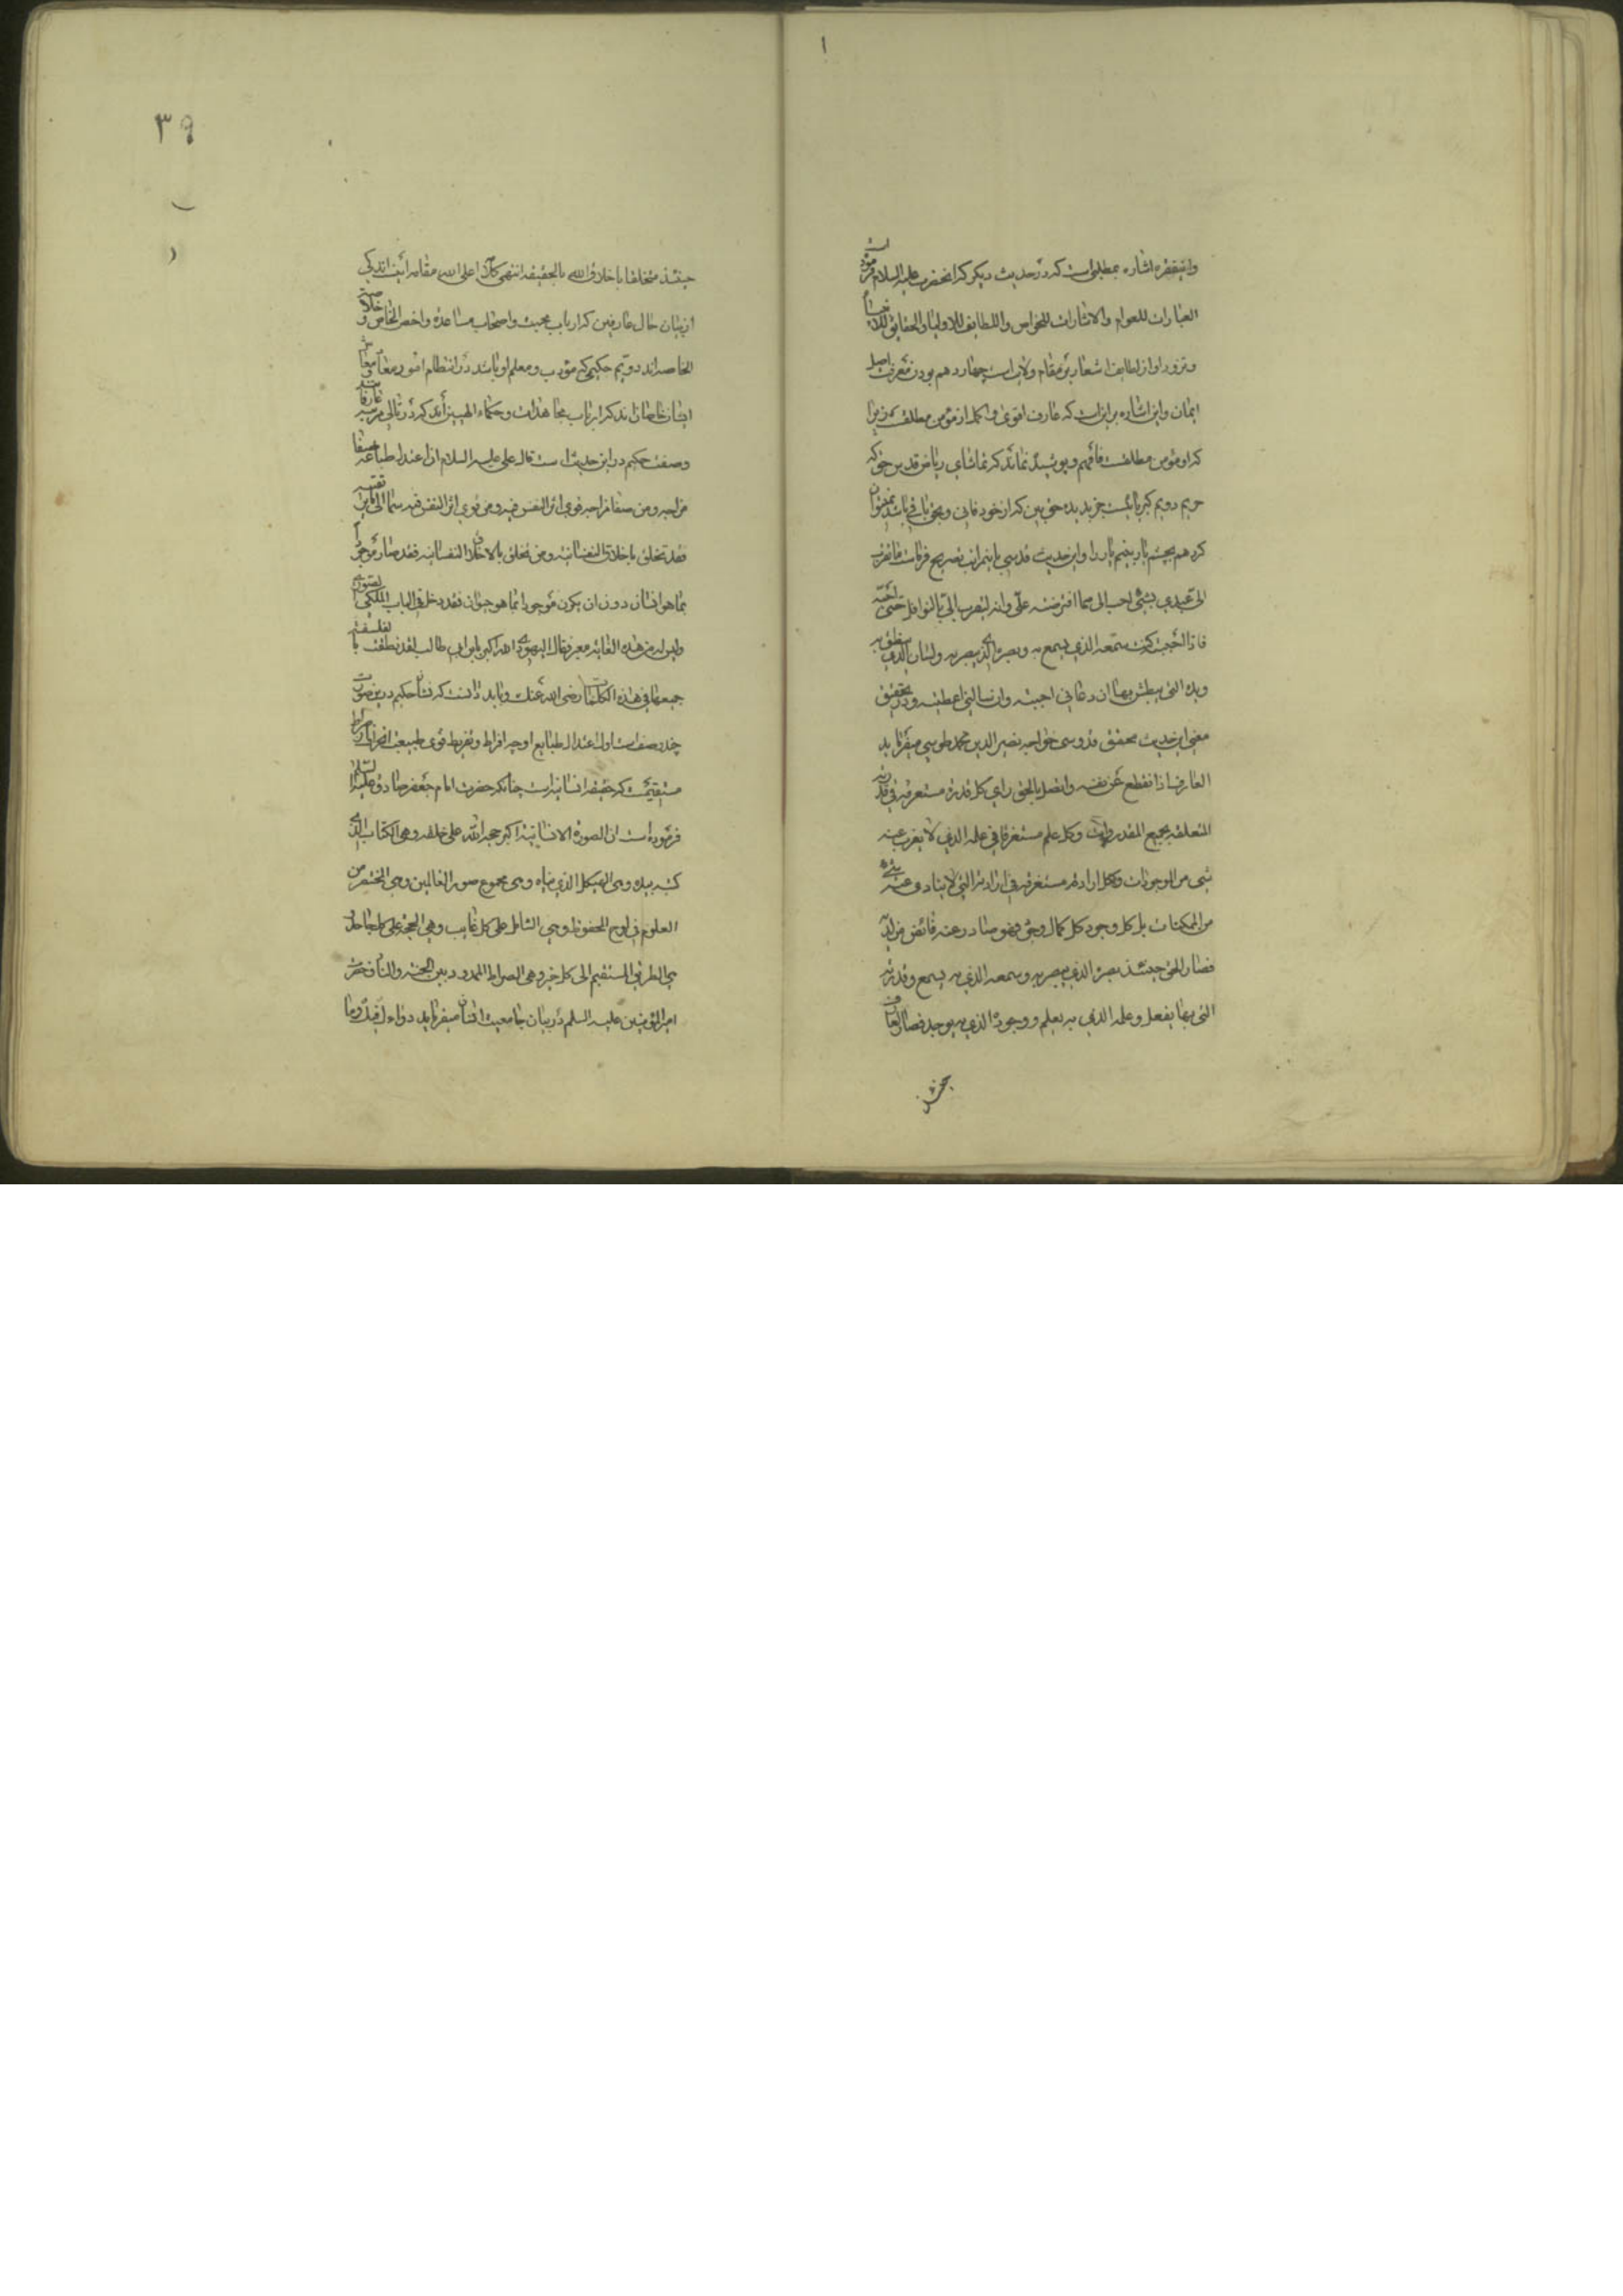 ۱
واینفقره اشاره بمطلبی است که در حدیث دیکر که انحضرت علیه السلام فرموده است
العبارات للعوام والاشارات للخواص واللطایف للاولیا والحقایق للانبیا
و او از لطایف اشعار بر مقام ولایت است چهاردهم بودن معرفت اصل
ایمان واین اشاره بر انست که عارف اقوی و اکمل از مؤمن مطلقست زیرا
که او مؤمن مطلقست فافهم وپوشیده نماند که تماشای ریاض قدس حق که
حریم کبریائیست جز بدیده حق بین که از خود فانی وبحق باقی باشد نمیتوان
کرد هم بچشم یار بینم یار را واین حدیث قدسی باینمراتب تصریح فرماست ما تقرب
الی عبدی بشئ احب الی مما افترضته علی وانه لیتقرب الی بالنوافل حتی احبه
فاذا احببته کنت سمعه الذی یسمع به وبصره الذی یبصر به ولسانه الذی ینطق به
ویده التی یبطش بها ان دعانی اجبته وان سالنی اعطیته ودر تحقیق
معنی این حدیث محقق قدوسی خواجه نصیر الدین محمد طوسی میفرماید
العارف اذا انقطع عن نفسه واتصل بالحق رای کل قدرة مستغرقه فی قدرته
المتعلقه بجمیع المقدورات وکل علم مستغرقا فی علمه الذی لا یعزب عنه
شی من الموجودات وکل اراده مستغرقه فی ارادته التی لا یتابی عنه شئ
من الممکنات بل کل وجود وکل کمال وجود فهو صادر عنه فائض من لدنه
فصار الحق حینئذ بصره الذی یبصر به وسمعه الذی به یسمع وقدرته
التی بها یفعل وعلمه الذی به یعلم ووجوده الذی به یوجد فصار العارف
حینئذ
۳۹
حینئذ متخلقا باخلاق الله بالحقیقه انتهی کلامه اعلی الله مقامه اینست اندکی
از بیان حال عارفین که ارباب محبت واصحاب مشاهده واخص الخواص وخلاصة
الخاصه اند دویم حکیمی که مؤدب ومعلم او باشد در انتظام امور معاش ومعاد
ایشان خاصان اند که ارباب مجاهدات وحکماء الهیین اند که در تالی مرتبه عارفانند
وصفت حکیم در این حدیث است قال علی علیه السلام اذا اعتدل طباعه صفا
مزاجه ومن صفا مزاجه قوی اثر النفس فیه ومن قوی اثر النفس فیه سما الی ما یرتقیه
فقد تخلق باخلاق النفسانیه ومن تخلق بالاخلاق النفسانیه فقد صار موجودا
بما هو انسان دون ان یکون موجودا بما هو حیوان فقد دخل فی الباب الملکی الصوری
ولیس له من هذه الغایه مغیر فقال الیهودی الله اکبر یابن ابی طالب لقد نطقت بالفلسفه
جمیعها فی هذه الکلمات رضی الله عنک وباید دانست که شان حکیم درین صورت
چند صفات اول اعتدال طبایع از افراط وتفریط قوی طبیعت صراط
مستقیمست که حقیقه انسانیت است چنانکه حضرت امام جعفر صادق علیه السلام
فرموده است ان الصورة الانسانیة اکبر حجة الله علی خلقه وهی الکتاب الذی
کتبه بیده وهی الهیکل الذی بناه وهی مجموع صور العالمین وهی المختصر من
العلوم فی لوح المحفوظ وهی الشاهد علی کل غایب وهی الحجة علی کل جاحد
هی الطریق المستقیم الی کل خیر وهی الصراط الممدود بین الجنه والنار وحضرت
امیر المؤمنین علیه السلم در بیان جامعیت انسان میفرماید دواءک فیک وما